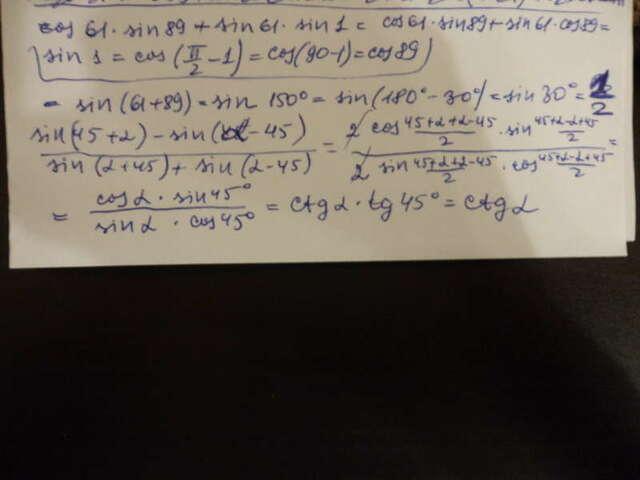 cos 61 · sin 89 + sin 61 · sin 1 = cos 61 · sin 89 + sin 61 · cos 89 =
sin 1 = cos (π/2 - 1) = cos(90-1) = cos 89
= sin (61+89) = sin 150° = sin(180° - 30°) = sin 30° = 1/2
(sin(45+α) - sin(α-45))/(sin (α+45) + sin (α-45)) = (2 cos (45+α+α-45)/2 · sin (45+α-α+45)/2)/(2 sin (45+α+α-45)/2 · cos (45+α-α+45)/2) =
= (cos α · sin 45°)/(sin α · cos 45°) = ctg α · tg 45° = ctg α